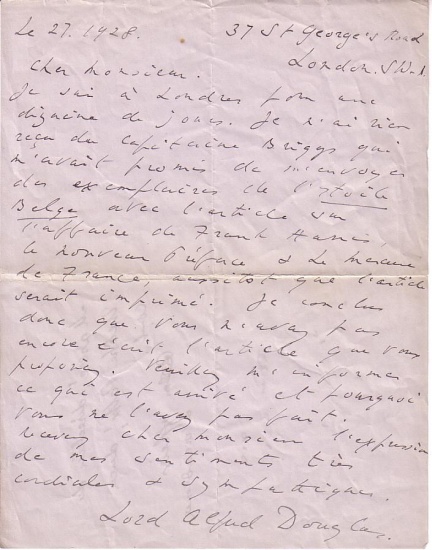 Le 27. 1928. 37 St George's Road
London. SW.1
Cher Monsieur.
Je suis à Londres pour une
dizaine de jours. Je n'ai rien
reçu du Capitaine Briggs qui
m'avait promis de m'envoyer
des exemplaires de l'Etoile
Belge avec l'article sur
l'affaire de Frank Harris,
le nouveau Préface & Le Mercure
de France, aussitot que l'article
serait imprimé. Je conclus
donc que vous n'avez pas
encore écrit l'article que vous
proposiez. Veuillez m'informer
ce qui est arrivé et pourquoi
vous ne l'avez pas fait.
Recevez cher monsieur l'expression
de mes sentiments très
cordiales & sympathiques.
Lord Alfred Douglas.